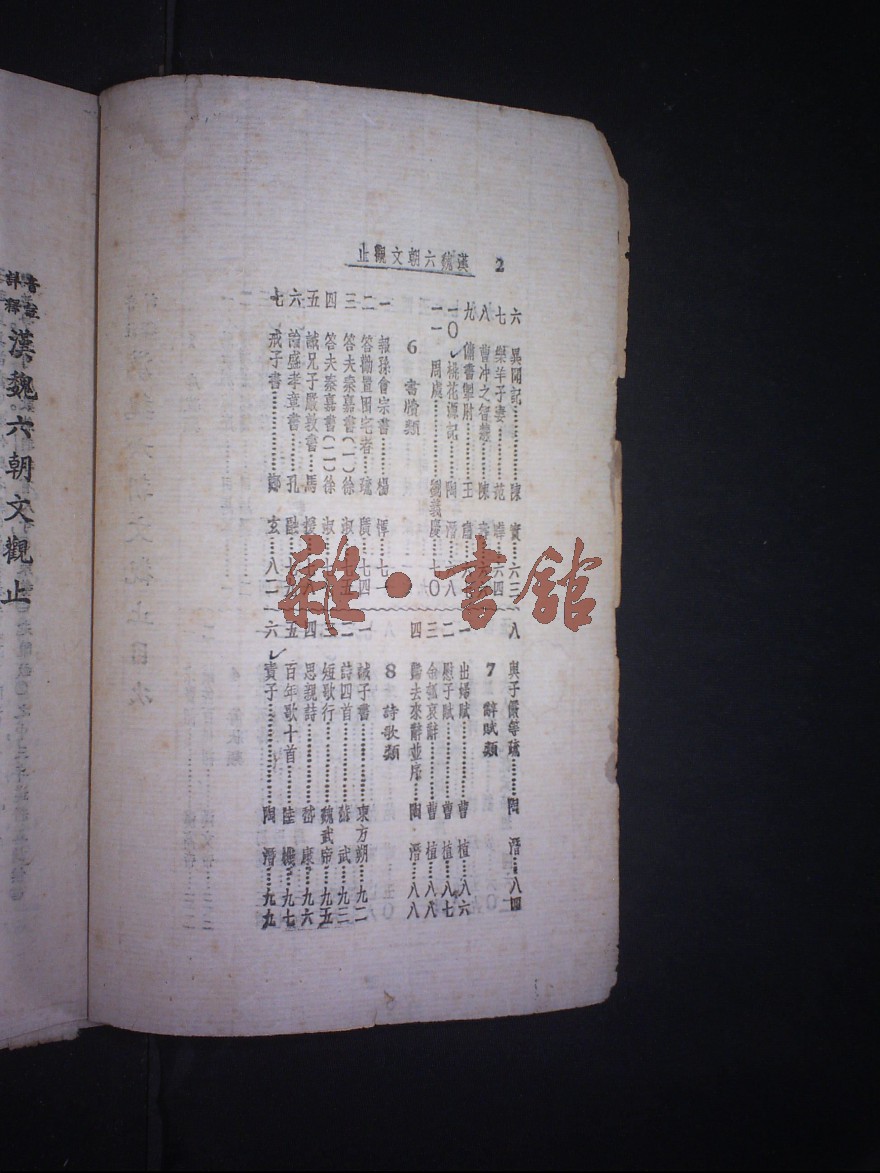 漢魏六朝文觀止
2
六 異聞記……陳 寔…六三
七 樂羊子妻……范 曄…六四
八 曹冲之智慧……陳
九 傭書犁尉……王
一〇 桃花源記……陶 潛…六八
一一 周處……劉義慶……七〇
6 書牘類
一 報孫會宗書……楊 惲…七一
二 答勸置田宅者…疏 廣…七四
三 答夫秦嘉書(一)徐 淑…七五
四 答夫秦嘉書(二)徐 淑
五 誡兄子嚴敦書…馬 援
六 論盛孝章書…孔 融
七 戒子書……鄭 玄…八二
八 與子儼等疏……陶 潛…八四
7 辭賦類
一 出婦賦……曹 植…八六
二 慰子賦……曹 植…八七
三 金瓠哀辭……曹 植…八八
四 歸去來辭並序…陶 潛…八八
8 詩歌類
一 誡子書……東方朔…九二
二 詩四首……蘇 武…九三
三 短歌行……魏武帝…九五
四 思親詩……嵇 康…九六
五 百年歌十首……陸 機…九七
六 責子……陶 潛…九九
音註
詳釋
漢魏六朝文觀止
雜·書館